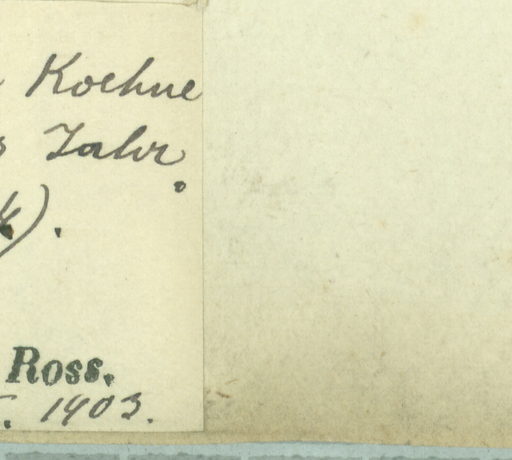 Koehne
Jahr
).
Ross.
. 1903.